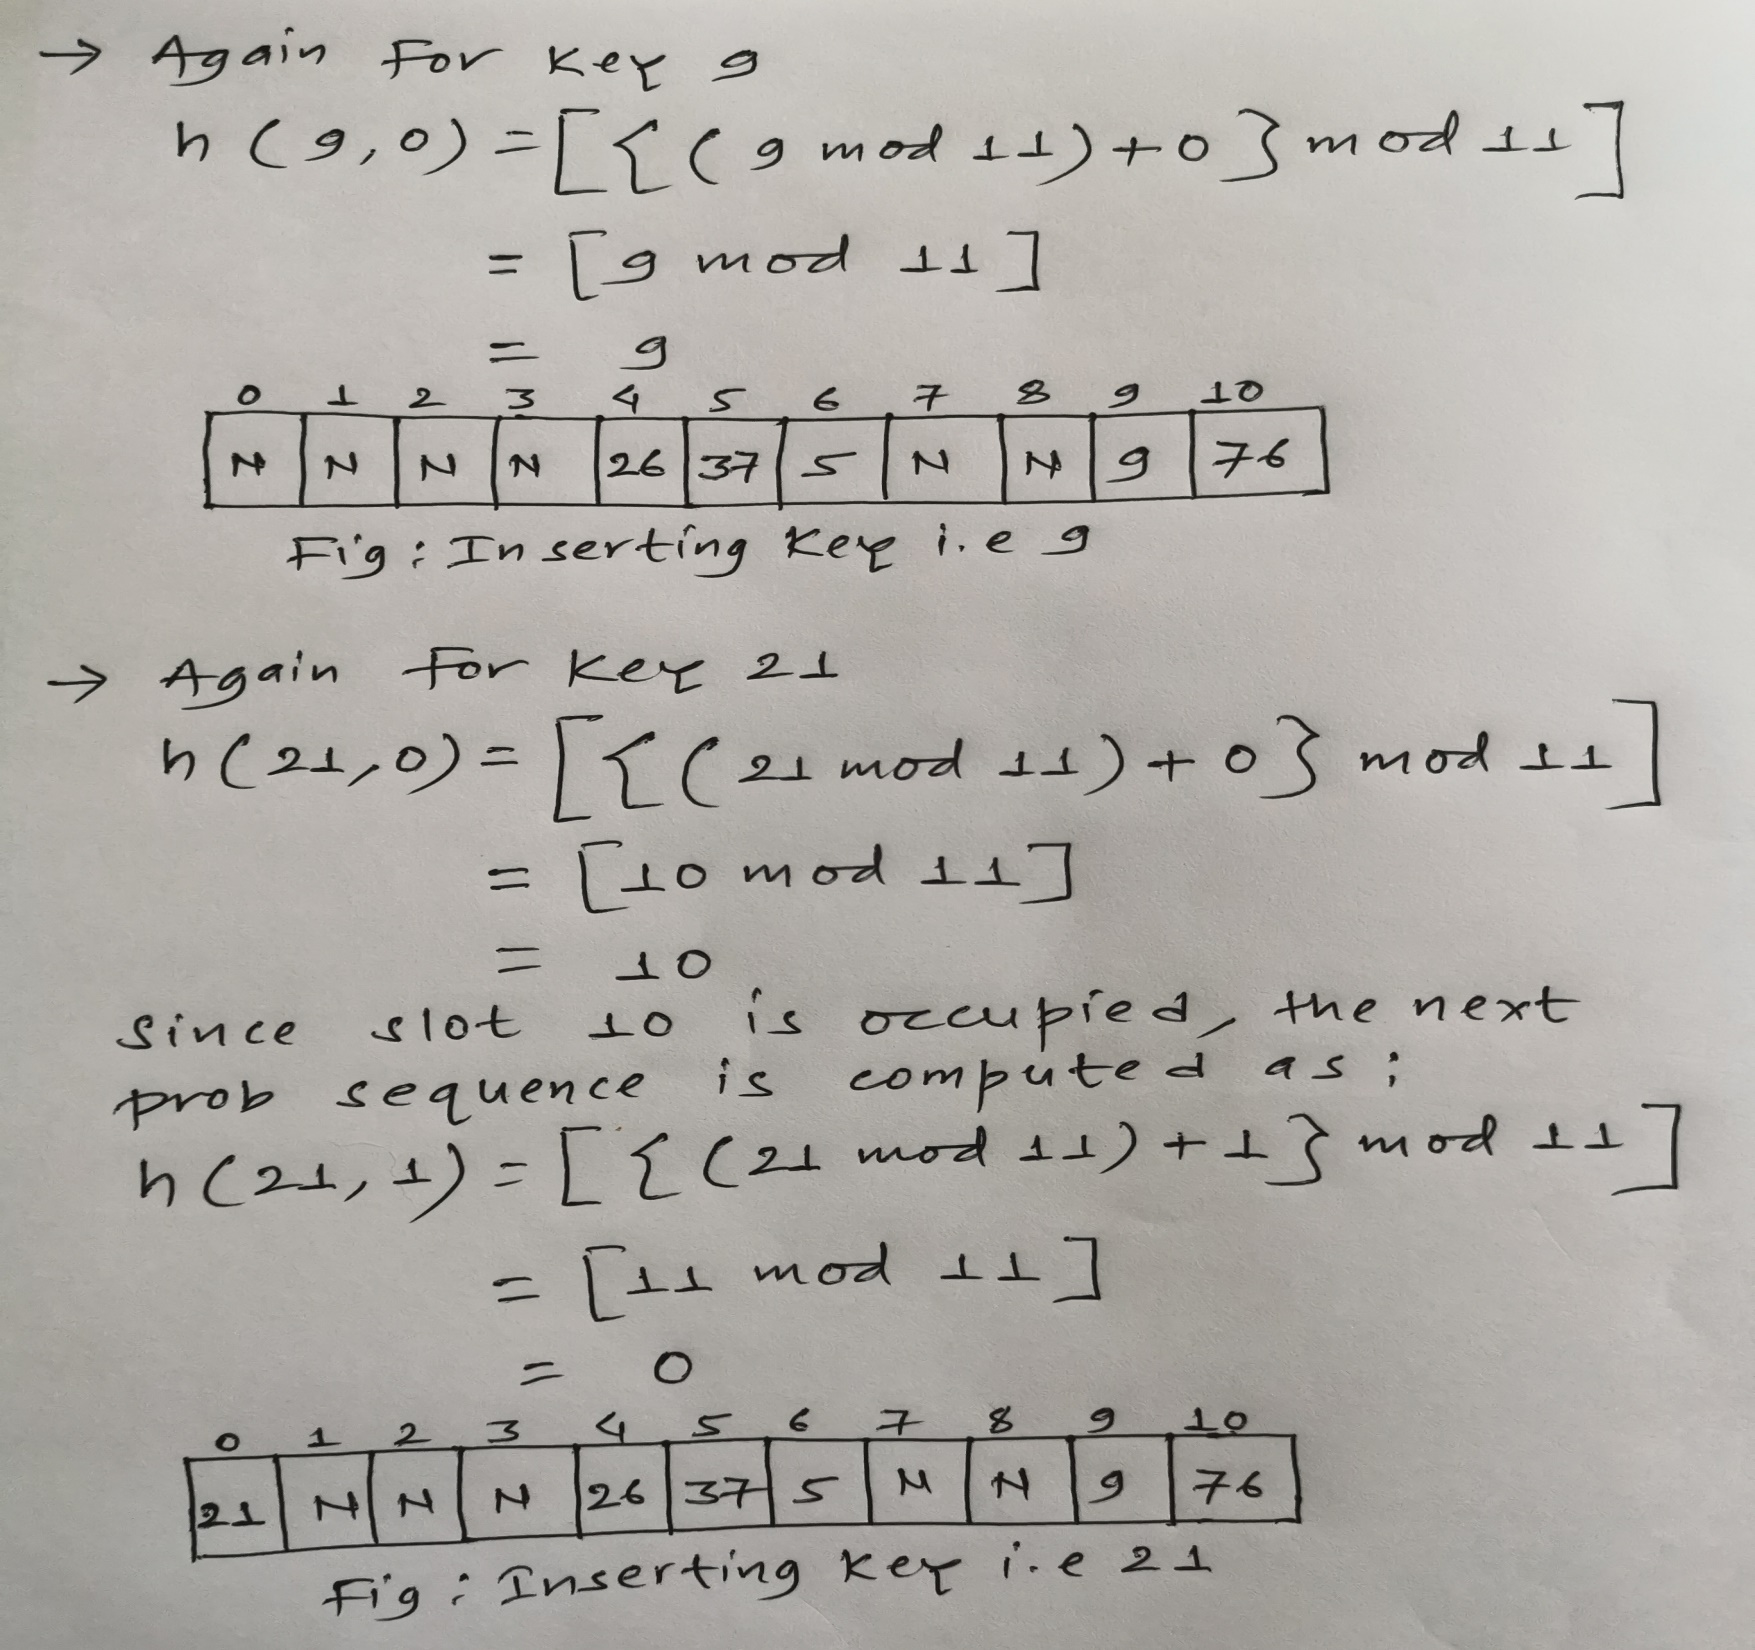 → Again for key 9
h(9,0)=[{(9 mod 11)+0}mod 11]
= [9 mod 11]
= 9
0 1 2 3 4 5 6 7 8 9 10
N N N N 26 37 5 N N 9 76
Fig: Inserting key i.e 9
→ Again for key 21
h(21,0)=[{(21 mod 11)+0} mod 11]
= [10 mod 11]
= 10
since slot 10 is occupied, the next
prob sequence is computed as;
h(21,1)=[{(21 mod 11)+1}mod 11]
= [11 mod 11]
= 0
0 1 2 3 4 5 6 7 8 9 10
21 N N N 26 37 5 N N 9 76
Fig: Inserting key i.e 21